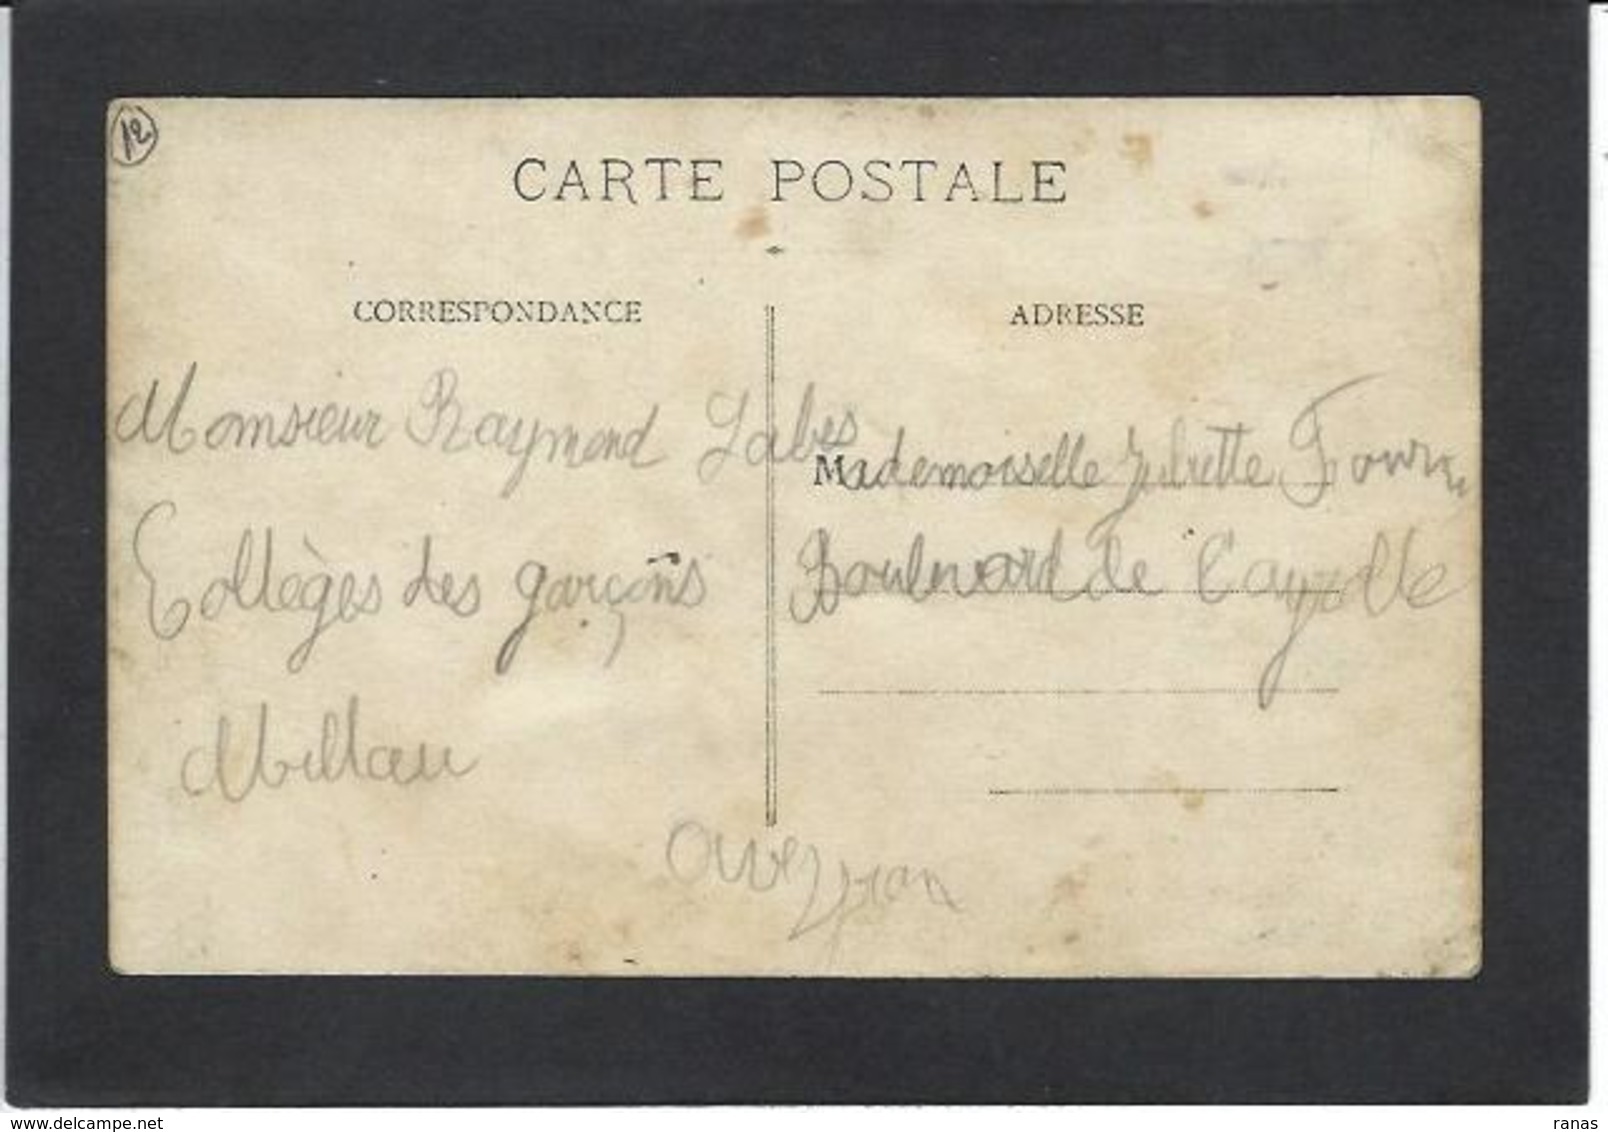 12
CARTE POSTALE
CORRESPONDANCE
Monsieur Raymond Labes
Collèges des garçons
Millau
Aveyron
ADRESSE
Mademoiselle Juliette
Boulevard de Cayrolle
www.delcampe.net
ranas